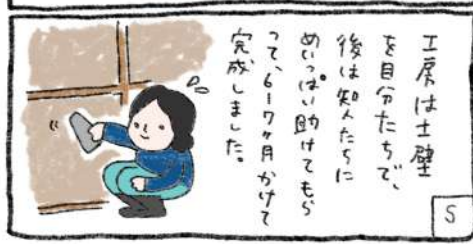 工房は土壁
を自分たちで、
後は知人たちに
めいっぱい助けてもら
って、6~7ヶ月かけて
完成しました。
5